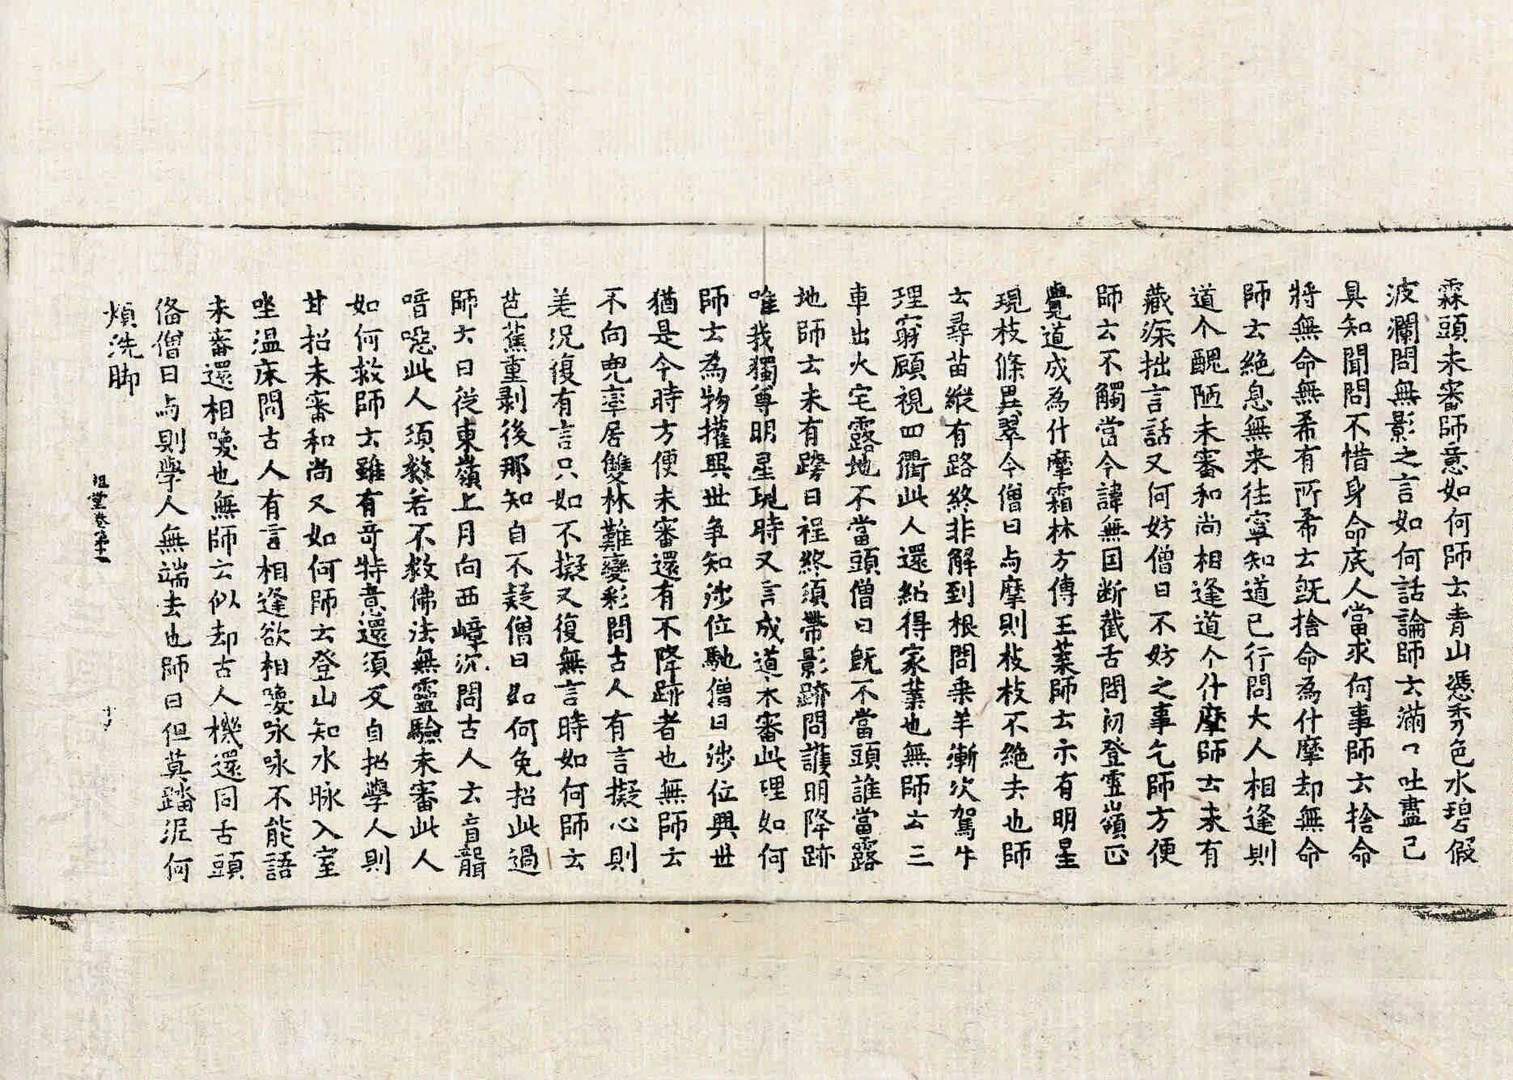 霖頭未審師意如何師云青山憑秀色水碧假
波瀾問無影之言如何話論師云滿口吐盡已
具知聞問不惜身命底人當求何事師云捨命
將無命無希有所希士既捨命為什摩却無命
師云絶息無来往寧知道已行問大人相逢則
道个醜陋未審和尚相逢道个什摩師云未有
藏深拙言話又何妨僧曰不妨之事乞師方便
師云不觸當今諱無囯断截舌問初登雪嶺正
覺道成為什摩霜林方傳王葉師云示有明星
現枝條異翠今僧曰与摩則枝枝不絶去也師
云尋苗縱有路終非解到根問乗羊漸次駕牛
理窮顧視四衢此人還紹得家業也無師云三
車出火宅露地不當頭僧曰既不當頭誰當露
地師云未有蹤日程終須帶影跡問護明降跡
唯我獨尊明星現時又言成道未審此理如何
師云為物權興世爭知涉位馳僧曰涉位興世
猶是今時方便未審還有不降跡者也無師云
不向兜率居雙林難變彩問古人有言擬心則
差況復有言只如不擬又復無言時如何師云
芭蕉重剥後那知自不疑僧曰如何免招此過
師云日從東嶺上月向西嶂沉問古人云音龍
喑噁此人須救若不救佛法無靈驗未審此人
如何救師云雖有奇特意還須友自招學人則
甘招未審和尚又如何師云登山知水脉入室
坐溫床問古人有言相逢欲相喚咏咏不能語
未審還相喚也無師云似却古人機還同舌頭
俻僧曰与則學人無端去也師曰但莫踏泥何
煩洗脚
祖堂卷第十一